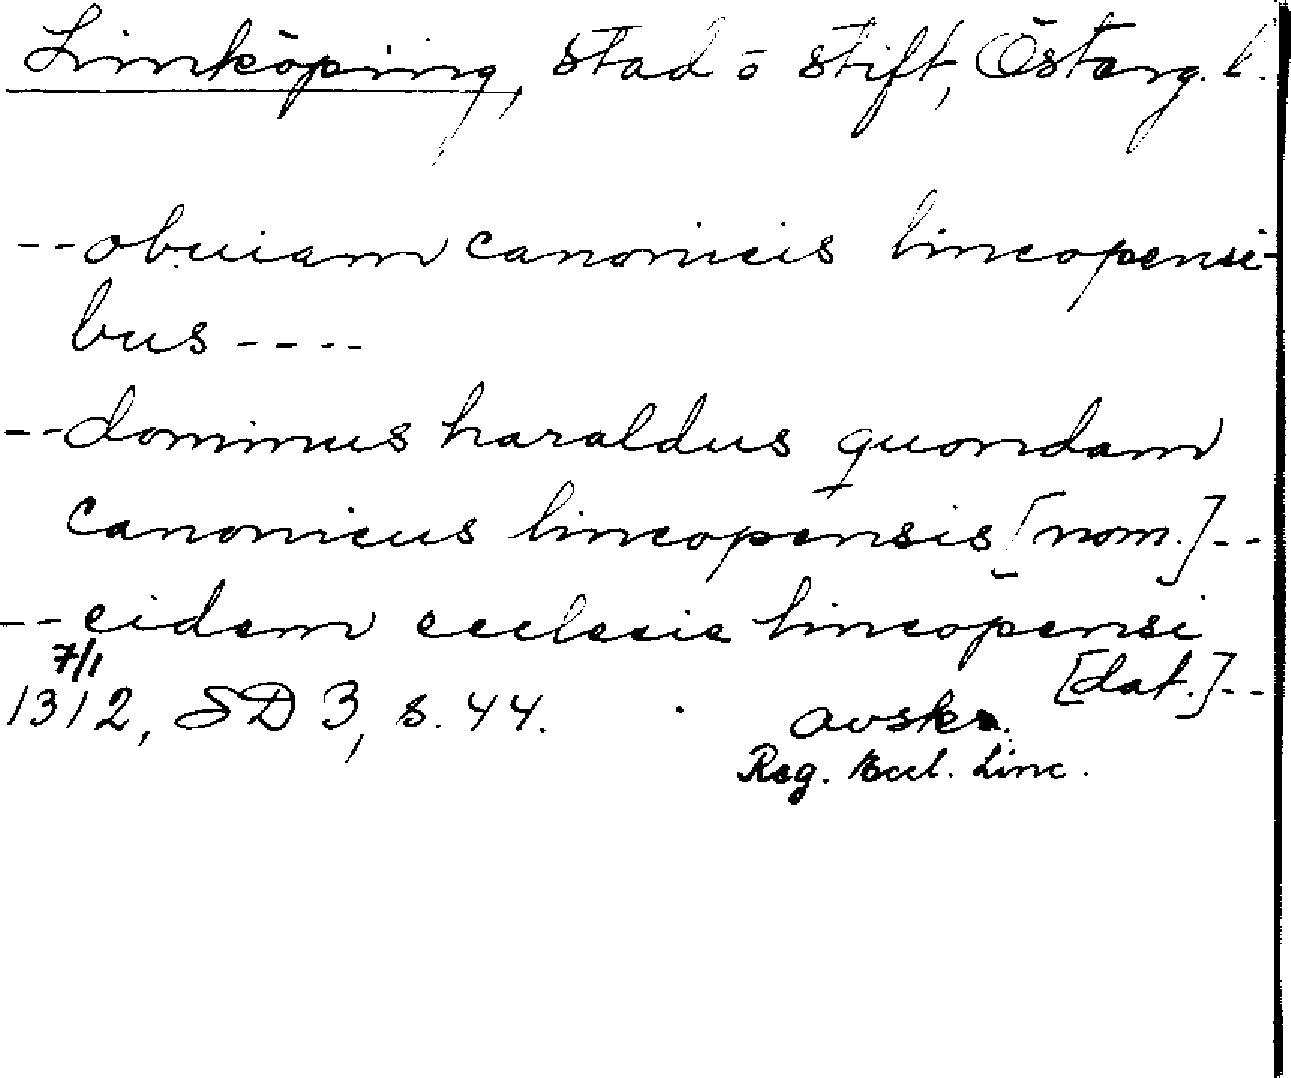 Linköping, stad o stift, Österg. l.
--obuiam canonicis lincopensi-
bus ----
--dominus haraldus quondam
canonicus lincopensis [nom.]--
--eidem ecclesie lincopensi
[dat.]--
7/1
1312, SD 3, s. 44. avskr.
Reg. Eccl. Linc.